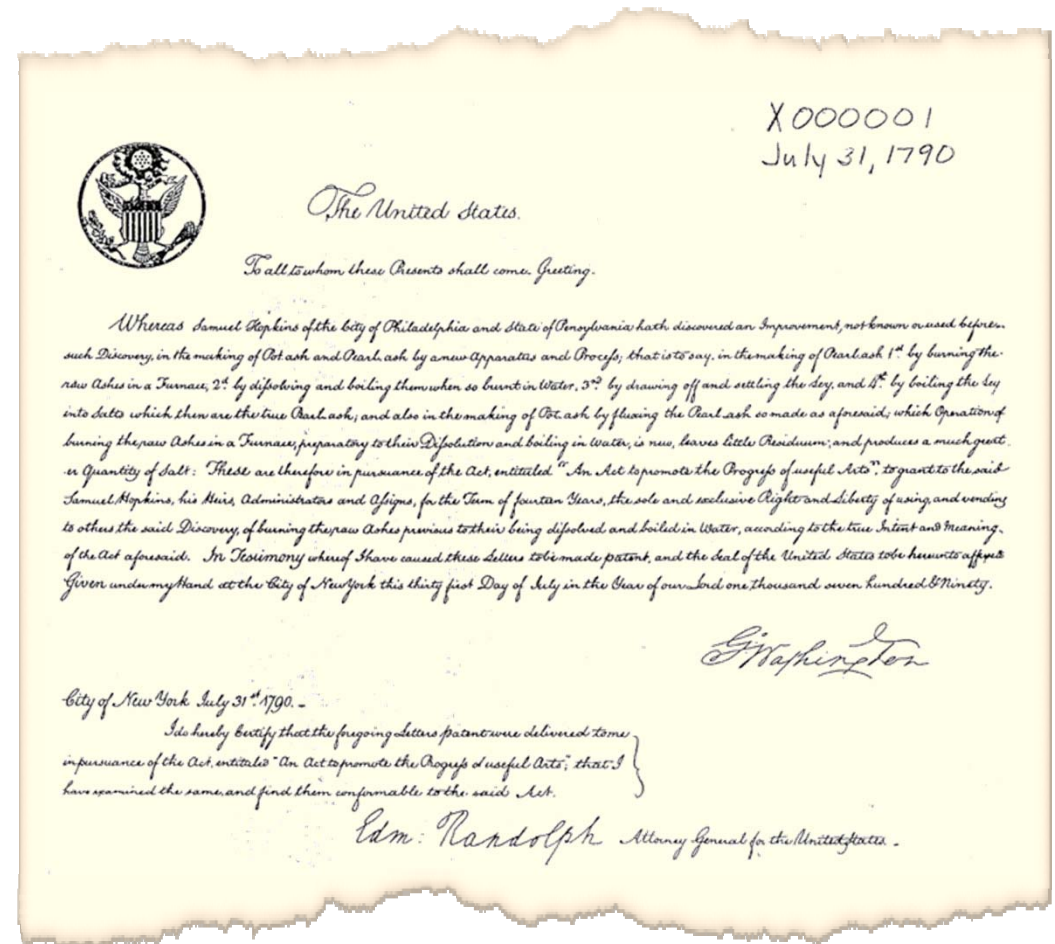 X000001
July 31, 1790
The United States.
To all to whom these Presents shall come. Greeting.
Whereas Samuel Hopkins of the City of Philadelphia and State of Pensylvania hath discovered an Improvement, not known or used before
such Discovery, in the making of Pot ash and Pearl ash by a new Apparatus and Process; that is to say, in the making of Pearl ash 1st. by burning the
raw Ashes in a Furnace, 2d. by dissolving and boiling them when so burnt in Water, 3rd. by drawing off and settling the Ley, and 4th. by boiling the Ley
into Salts which then are the true Pearl ash; and also in the making of Pot ash by fluxing the Pearl ash so made as aforesaid; which Operation of
burning the raw Ashes in a Furnace, preparatory to their Dissolution and boiling in Water, is new, leaves little Residuum; and produces a much great
er Quantity of Salt: These are therefore in pursuance of the Act, entituled "An Act to promote the Progress of useful Arts", to grant to the said
Samuel Hopkins, his Heirs, Administrators and Assigns, for the Term of fourteen Years, the sole and exclusive Right and Liberty of using, and vending
to others the said Discovery, of burning the raw Ashes previous to their being dissolved and boiled in Water, according to the true Intent and Meaning
of the Act aforesaid. In Testimony whereof I have caused these Letters to be made patent, and the Seal of the United States to be hereunto affixed
Given under my Hand at the City of New York this thirty first Day of July in the Year of our Lord one thousand seven hundred & Ninety.
G. Washington
City of New York July 31st. 1790. -
I do hereby Certify that the foregoing Letters patent were delivered to me
in pursuance of the Act, entituled "An Act to promote the Progress of useful Arts"; that I
have examined the same, and find them conformable to the said Act.
Edm: Randolph Attorney General for the United States. -